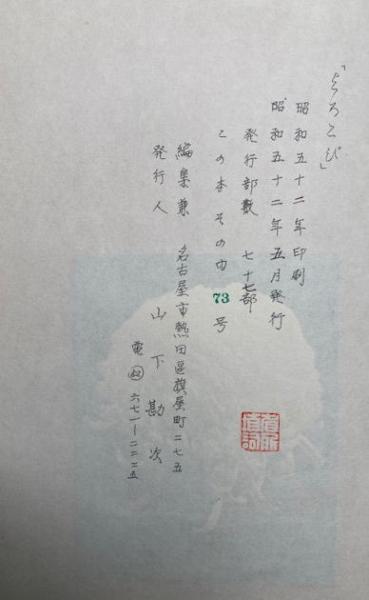 「よろこび」
昭和五十二年印刷
昭和五十二年五月発行
発行部数 七十七部
この本その内 73 号
編集兼 名古屋市熱田区旗屋町二七五
発行人 山下勘次
電 六七一-二二二五